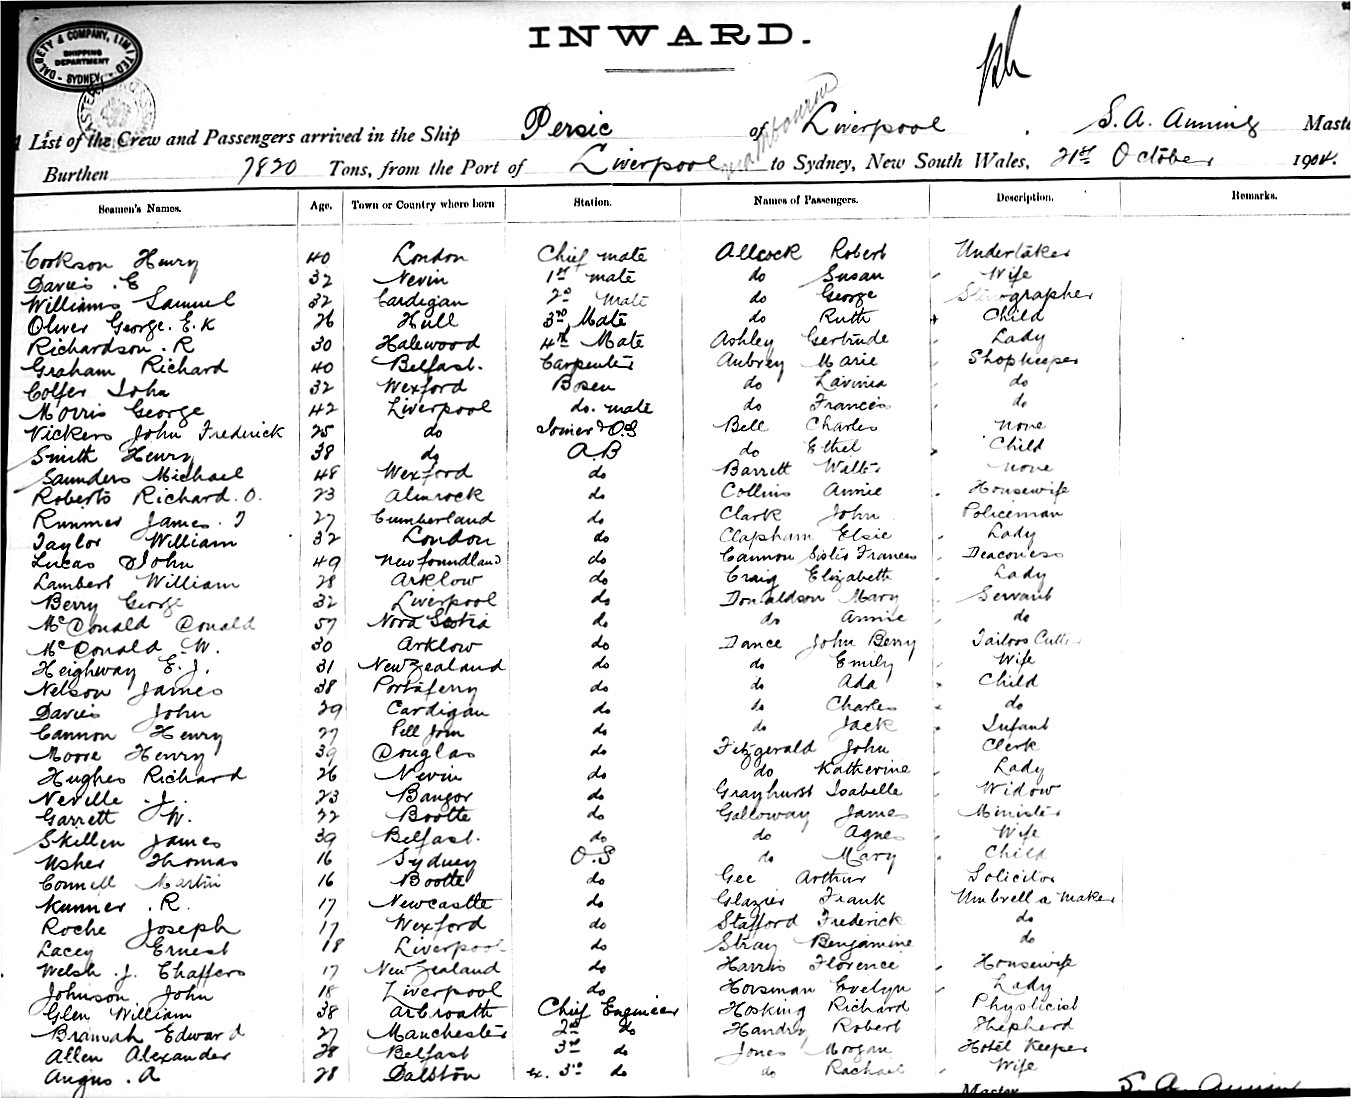 DALGETY & COMPANY, LIMITED
SHIPPING
DEPARTMENT
SYDNEY
INWARD.
List of the Crew and Passengers arrived in the Ship Persic of Liverpool, S. A. Anning Maste
Burthen 7820 Tons, from the Port of Liverpool via Melbourne to Sydney, New South Wales, 21st October 1904.
Seamen's Names. Age. Town or Country where born Station. Names of Passengers. Description. Remarks.
Cookson Henry 40 London Chief mate Allcock Robert Undertaker
Davies . E 32 Nevin 1st mate do Susan Wife
Williams Samuel 32 Cardigan 2nd mate do George Stenographer
Oliver George. E. K 26 Hull 3rd Mate do Ruth Child
Richardson . R 30 Halewood 4th Mate Ashley Gertrude Lady
Graham Richard 40 Belfast. Carpenter Aubrey Marie Shopkeeper
Colfer John 32 Wexford Bosen do Lavinia do
Morris George 42 Liverpool do. mate do Frances do
Vickers John Frederick 25 do Joiner & O.S Bell Charles none
Smith Henry 38 do A.B do Ethel Child
Saunders Michael 48 Wexford do Barrett Walter none
Roberts Richard. O. 23 Almrock do Collins Annie Housewife
Rimmer James. T 27 Cumberland do Clark John Policeman
Taylor William 32 London do Clapham Elsie Lady
Lucas John 49 Newfoundland do Cannon Sister Frances Deaconess
Lambert William 28 Arklow do Craig Elizabeth Lady
Berry George 32 Liverpool do Donaldson Mary Servant
McDonald Donald 57 Nova Scotia do do Annie do
McDonald W. 30 Arklow do Dance John Berry Tailors Cutter
Heighway E. J. 31 New Zealand do do Emily Wife
Nelson James 38 Portaferry do do Ada Child
Davies John 29 Cardigan do do Charles do
Cannon Henry 27 do do Jack Infant
Moore Henry 39 Douglas do Fitzgerald John Clerk
Hughes Richard 26 Nevin do do Katherine Lady
Neville . J. 23 Bangor do Grayhurst Isabelle Widow
Garrett W. 22 Bootle do Galloway James Minister
Skillen James 39 Belfast. do do Agnes Wife
Usher Thomas 16 Sydney O.S do Mary Child
Connell Martin 16 Bootle do Gee Arthur Solicitor
Kunner . R. 17 Newcastle do Glazier Frank Umbrella Maker
Roche Joseph 17 Wexford do Stafford Frederick do
Lacey Ernest 18 Liverpool do Stray Benjamine do
Welsh . J. Chaffers 17 New Zealand do Harris Florence Housewife
Johnson John 18 Liverpool do Horsman Evelyn Lady
Glen William 38 Arbroath Chief Engineer Hosking Richard Physicist
Bramah Edward 27 Manchester 2nd do Handry Robert Shepherd
Allen Alexander 28 Belfast 3rd do Jones Morgan Hotel Keeper
Angus . A 28 Dalston ex. 3rd do do Rachael Wife
Master S. A. Anning